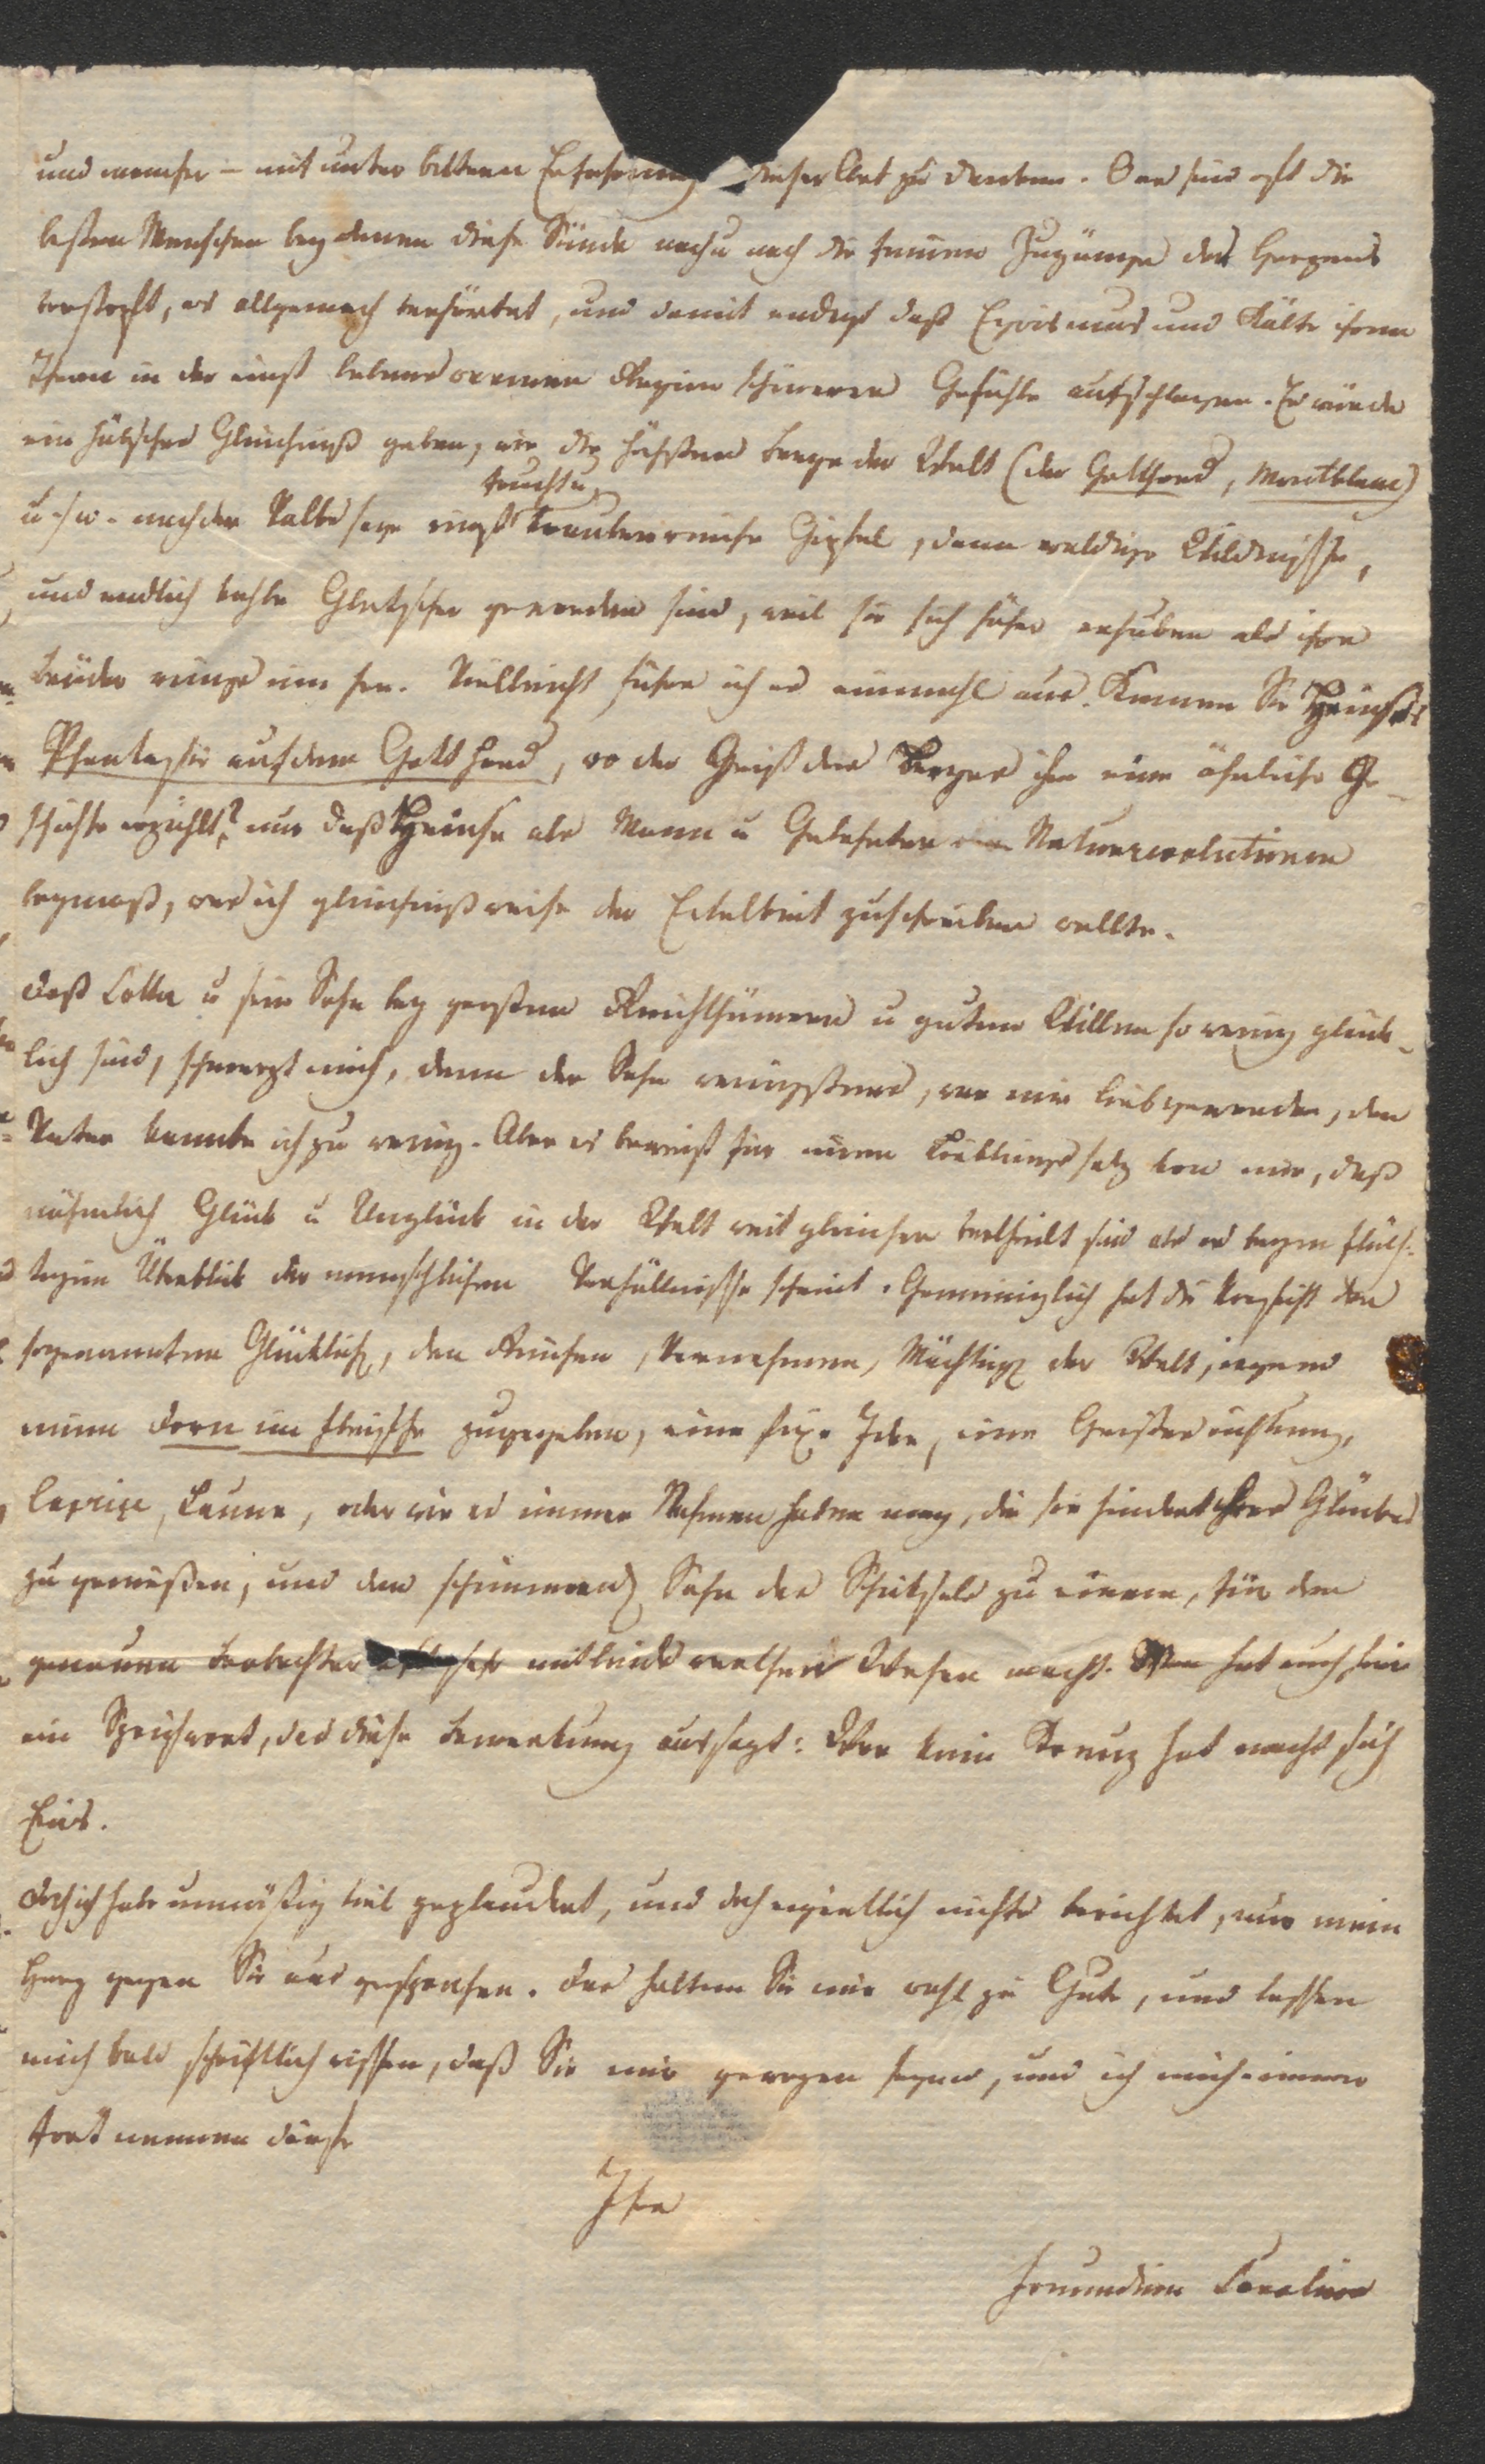 und mancher – mit unter bitteren Erfahrung dieser Art zu denken. Das sind oft die
besten Menschen bey denen diese Sünde nach u nach die feinen Zugänge des Herzens
verstopft, es allgemach verhärtet, und damit endigt daß Egoismus und Kälte ihren
Thron in der einst lebenswarmen Region schönerer Gefühle aufschlagen. Es würde
ein hübsches Gleichniß geben, wie die höchsten Berge der Welt (der Gotthard, Montblanc)
fruchtb
u. s. w. nach der Volkssage einst kräuterreiche Gipfel, dann waldige Wildnisse,
und endlich kahle Gletscher geworden sind, weil sie sich höher erhuben als ihre
Brüder rings um her. Vielleicht führe ich es einmahl aus. Kennen Sie Heinses
Phantasie auf dem Gotthard, wo der Geist des Berges ihm eine ähnliche Ge-
schichte erzählt? nur daß Heinse als Mann u Gelehrter Naturrevolutionen
beymaß, was ich gleichnißweise der Eitelkeit zuschreiben wollte.
Daß Cotta u sein Sohn bey großen Reichthümern u gutem Willen so wenig glück-
lich sind, schmerzt mich, denn der Sohn wenigstens, war mir lieb geworden, den
Vater kannte ich zu wenig. Aber es beweist für einen Lieblingssatz von mir, daß
nähmlich Glück u Unglück in der Welt weit gleicher vertheilt sind als es beym flüch-
tigen Überblick der menschlichen Verhältnisse scheint. Gemeiniglich hat die Vorsicht den
sogenannten Glücklich, den Reichen, Vornehmen, Mächtig der Welt, irgend
einen Dorn im Fleische zugegeben, eine fixe Idee, eine Geistesrichtung,
Caprice, Laune, oder wie es immer Nahmen haben mag, die sie hindert ihres Glückes
zu genießen, und den schimmernd Sohn des Schicksals zu einem, für den
genauen Beobachter sehr mitleidswerthen Wesen macht. Man hat auch hier
ein Sprichwort, das diese Bemerkung aussagt: Wer kein Kreuz hat macht sich
Eins.
Doch ich habe unmäßig viel geplaudert, und doch eigentlich nichts berichtet, nur mein
Herz gegen Sie ausgesprochen. Das halten Sie mir wohl zu Gute, und lassen
mich bald schriftlich wissen, daß Sie mir gewogen seyen, und ich mich immer
fort nennen dürfe
Ihre
Freundinn Caroline